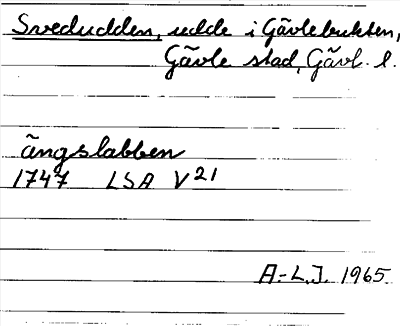 Svedudden, udde i Gävlebukten,
Gävle stad, Gävl. l.
ängslabben
1747 LSA V21
A.-L.J. 1965.